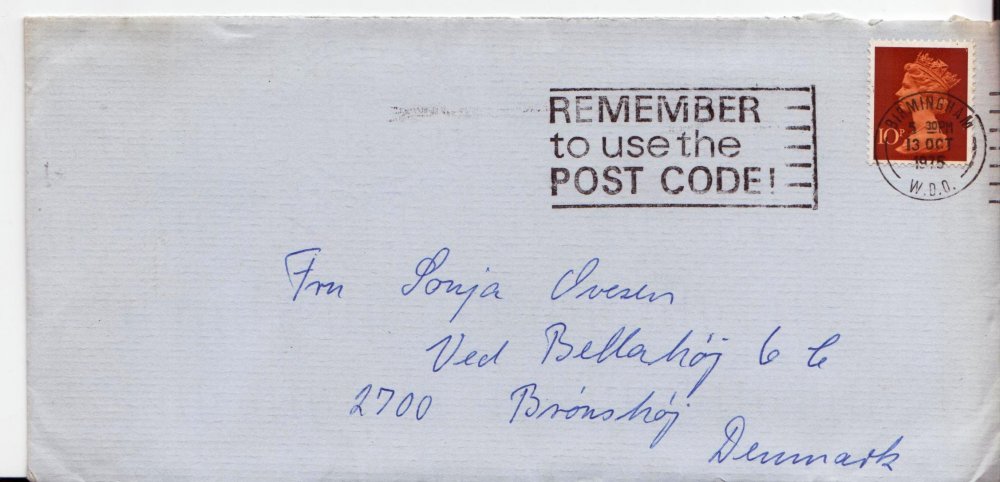 REMEMBER
to use the
POST CODE!
10P
BIRMINGHAM
5 30PM
13 OCT
1975
W.D.O.
Fru Sonja Ovesen
Ved Bellahøj 6 C
2700 Brönshøj
Denmark